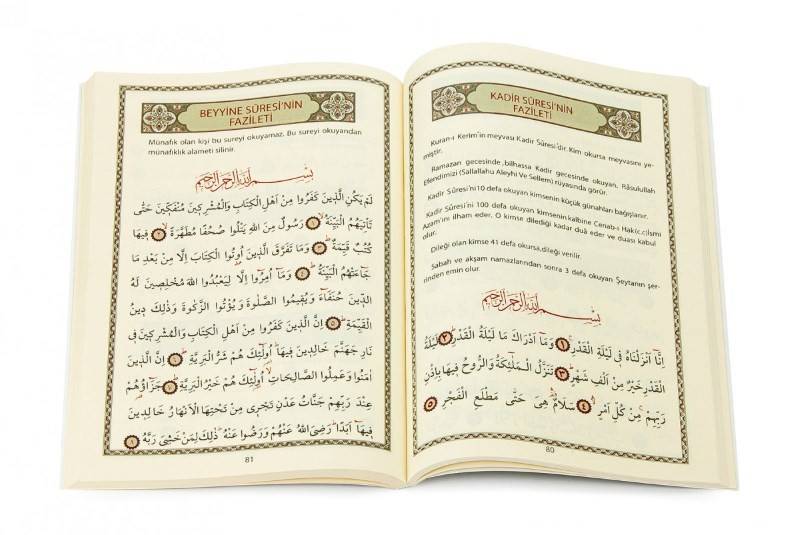 KADİR SÛRESİ'NİN
FAZİLETİ
Kuran-ı Kerim'in meyvası Kadir Sûresi'dir. Kim okursa meyvasını ye-
miştir.
Ramazan gecesinde ,bilhassa Kadir gecesinde okuyan, Râsulullah
Efendimizi (Sallallahu Aleyhi Ve Sellem) rüyasında görür.
Kadir Sûresi'ni 10 defa okuyan kimsenin küçük günahları bağışlanır.
Kadir Sûresi'ni 100 defa okuyan kimsenin kalbine Cenab-ı Hak(c.c)İsmi
Azam'ını ilham eder. O kimse dilediği kadar duâ eder ve duası kabul
olur.
Dileği olan kimse 41 defa okursa,dileği verilir.
Sabah ve akşam namazlarından sonra 3 defa okuyan Şeytanın şer-
rinden emin olur.
بِسْمِ اللّٰهِ الرَّحْمٰنِ الرَّحِيمِ
اِنَّٓا اَنْزَلْنَاهُ فِى لَيْلَةِ الْقَدْرِۚ ﴿١﴾ وَمَٓا اَدْرٰيكَ مَا لَيْلَةُ الْقَدْرِۜ ﴿٢﴾ لَيْلَةُ
الْقَدْرِ خَيْرٌ مِنْ اَلْفِ شَهْرٍۜ ﴿٣﴾ تَنَزَّلُ الْمَلٰٓئِكَةُ وَالرُّوحُ فِيهَا بِاِذْنِ
رَبِّهِمْ مِنْ كُلِّ اَمْرٍۙ ﴿٤﴾ سَلَامٌ هِىَ حَتّٰى مَطْلَعِ الْفَجْرِ ﴿٥﴾
80
BEYYİNE SÛRESİ'NİN
FAZİLETİ
Münafık olan kişi bu sureyi okuyamaz. Bu sureyi okuyandan
münafıklık alameti silinir.
بِسْمِ اللّٰهِ الرَّحْمٰنِ الرَّحِيمِ
لَمْ يَكُنِ الَّذِينَ كَفَرُوا مِنْ اَهْلِ الْكِتَابِ وَالْمُشْرِكِينَ مُنْفَكِّينَ حَتّٰى
تَأْتِيَهُمُ الْبَيِّنَةُۙ ﴿١﴾ رَسُولٌ مِنَ اللّٰهِ يَتْلُوا صُحُفًا مُطَهَّرَةًۙ ﴿٢﴾ فِيهَا
كُتُبٌ قَيِّمَةٌۜ ﴿٣﴾ وَمَا تَفَرَّقَ الَّذِينَ اُوتُوا الْكِتَابَ اِلَّا مِنْ بَعْدِ مَا
جَٓاءَتْهُمُ الْبَيِّنَةُۜ ﴿٤﴾ وَمَٓا اُمِرُٓوا اِلَّا لِيَعْبُدُوا اللّٰهَ مُخْلِصِينَ لَهُ
الدِّينَ حُنَفَٓاءَ وَيُقِيمُوا الصَّلٰوةَ وَيُؤْتُوا الزَّكٰوةَ وَذٰلِكَ دِينُ
الْقَيِّمَةِۜ ﴿٥﴾ اِنَّ الَّذِينَ كَفَرُوا مِنْ اَهْلِ الْكِتَابِ وَالْمُشْرِكِينَ فِى
نَارِ جَهَنَّمَ خَالِدِينَ فِيهَاۜ اُولٰٓئِكَ هُمْ شَرُّ الْبَرِيَّةِۜ ﴿٦﴾ اِنَّ الَّذِينَ
اٰمَنُوا وَعَمِلُوا الصَّالِحَاتِۙ اُولٰٓئِكَ هُمْ خَيْرُ الْبَرِيَّةِۜ ﴿٧﴾ جَزَٓاؤُهُمْ
عِنْدَ رَبِّهِمْ جَنَّاتُ عَدْنٍ تَجْرِى مِنْ تَحْتِهَا الْاَنْهَارُ خَالِدِينَ
فِيهَٓا اَبَدًاۜ رَضِىَ اللّٰهُ عَنْهُمْ وَرَضُوا عَنْهُۜ ذٰلِكَ لِمَنْ خَشِىَ رَبَّهُ ﴿٨﴾
81